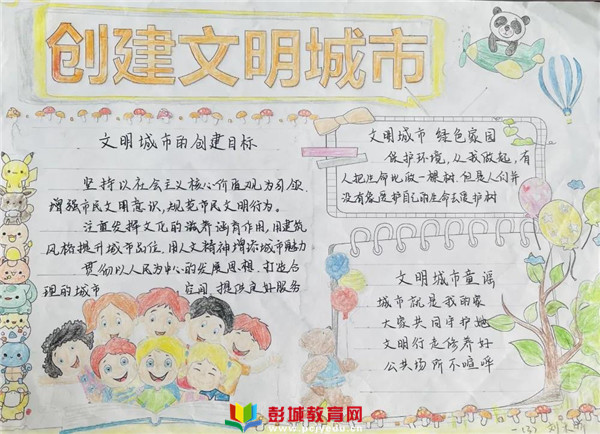 创建文明城市
文明城市的创建目标
坚持以社会主义核心价值观为引领
增强市民文明意识,规范市民文明行为。
注重发挥文化的滋养涵育作用,用建筑
风格提升城市品位,用人文精神增添城市魅力
贯彻以人民为中心的发展思想,打造合
理的城市 空间,提供良好服务
文明城市 绿色家园
保护环境,从我做起,有
人把生命比做一棵树,但是人们并
没有象爱护自己的生命去爱护树
文明城市童谣
城市就是我的家
大家共同守护她
文明行走修养好
公共场所不喧哗
彭城教育网
www.pcjyedu.cn